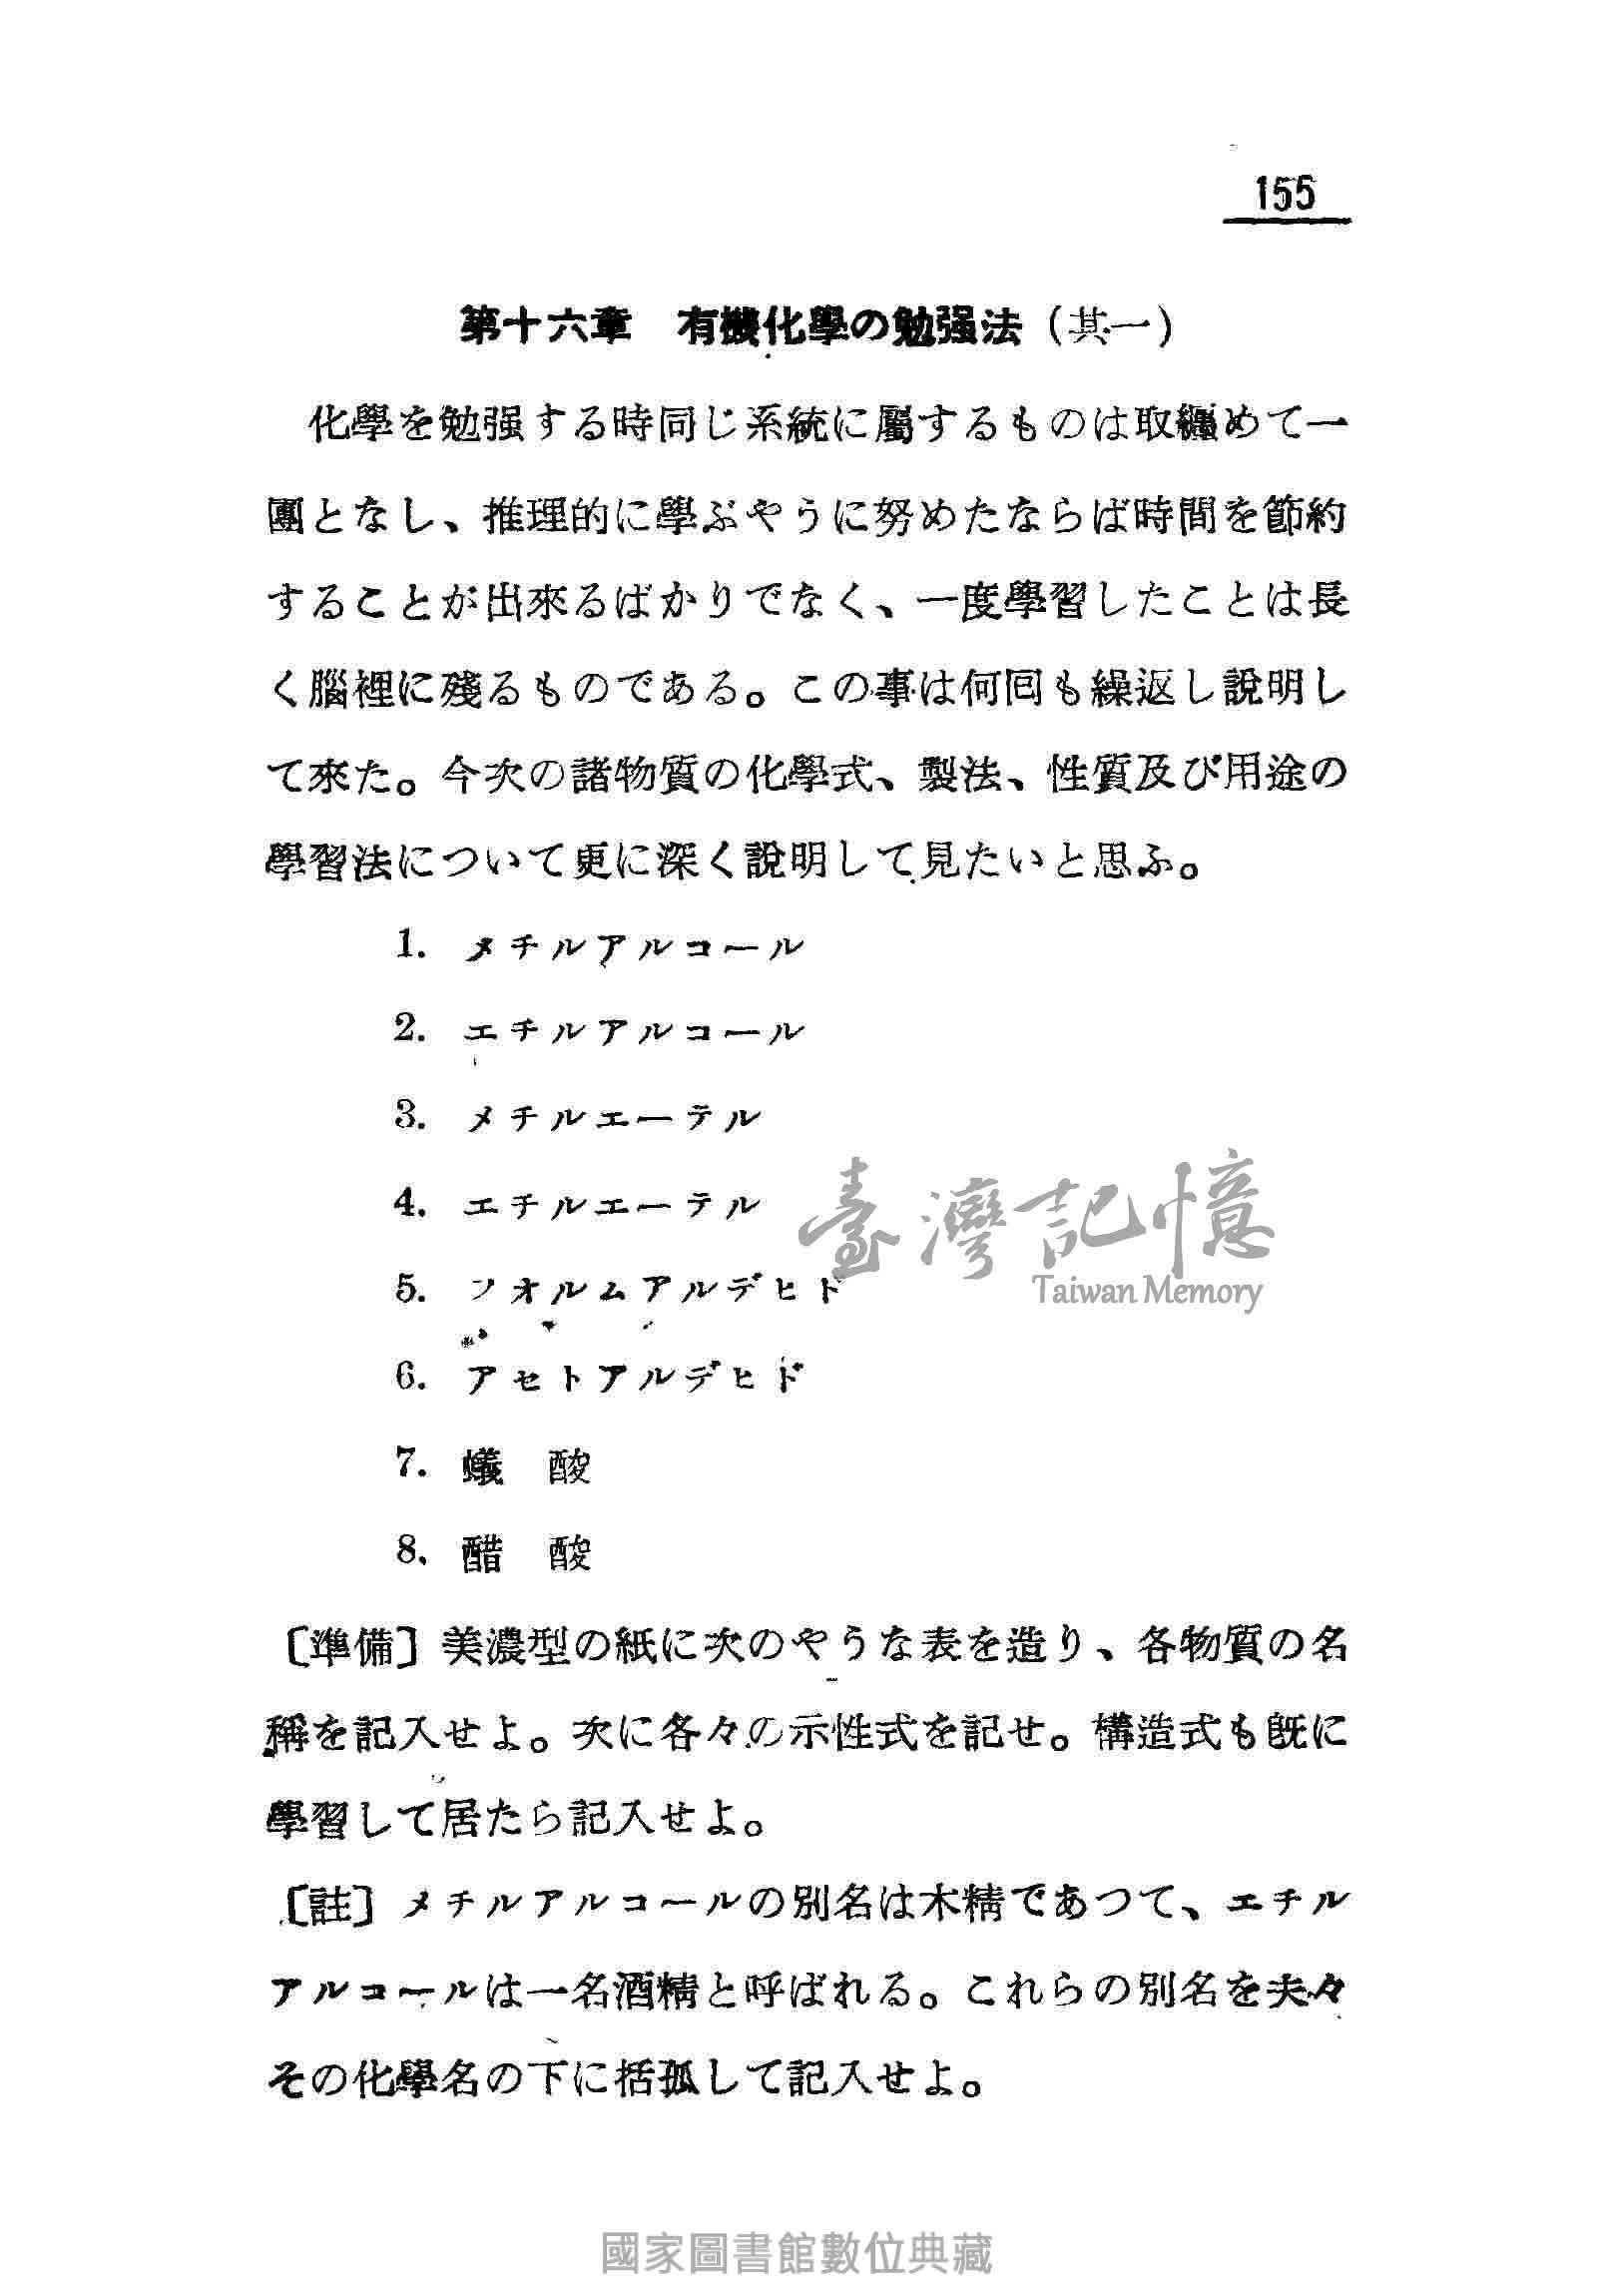 155
第十六章　有機化學の勉强法（其一）
化學を勉强する時同じ系統に屬するものは取纏めて一
團となし、推理的に學ぶやうに努めたならば時間を節約
することが出來るばかりでなく、一度學習したことは長
く腦裡に殘るものである。この事は何囘も繰返し說明し
て來た。今次の諸物質の化學式、製法、性質及び用途の
學習法について更に深く說明して見たいと思ふ。
1. メチルアルコール
2. エチルアルコール
3. メチルエーテル
4. エチルエーテル
臺灣記憶
Taiwan Memory
5. フオルムアルデヒド
6. アセトアルデヒド
7. 蟻　酸
8. 醋　酸
〔準備〕美濃型の紙に次のやうな表を造り、各物質の名
稱を記入せよ。次に各々の示性式を記せ。構造式も旣に
學習して居たら記入せよ。
〔註〕メチルアルコールの別名は木精であつて、エチル
アルコールは一名酒精と呼ばれる。これらの別名を夫々
その化學名の下に括孤して記入せよ。
國家圖書館數位典藏